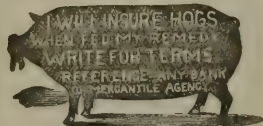 I WILL INSURE HOGS
WHEN FED MY REMEDY
WRITE FOR TERMS
REFERENCE ANY BANK
OR MERCANTILE AGENCY